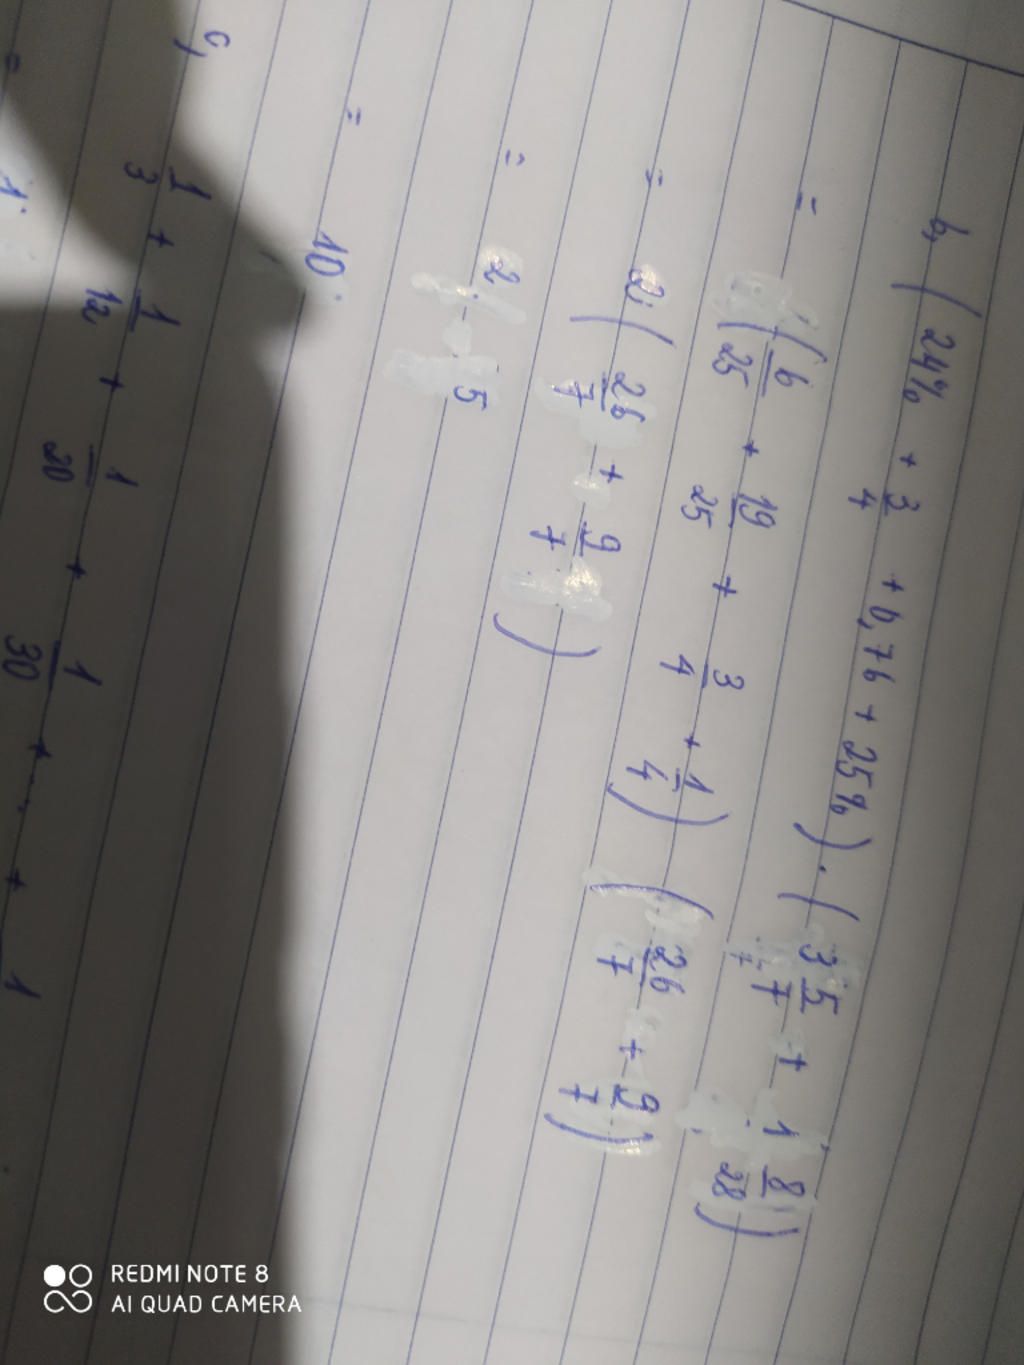 b, ( 24% + 3/4 + 0,76 + 25% ) . ( 3 5/7 + 1 8/28 )
= ( 6/25 + 19/25 + 3/4 + 1/4 ) ( 26/7 + 9/7 )
= 2. ( 26/7 + 9/7 )
= 2. 5
= 10.
c, 1/3 + 1/12 + 1/20 + 1/30 + ... + 1
= 1
REDMI NOTE 8
AI QUAD CAMERA